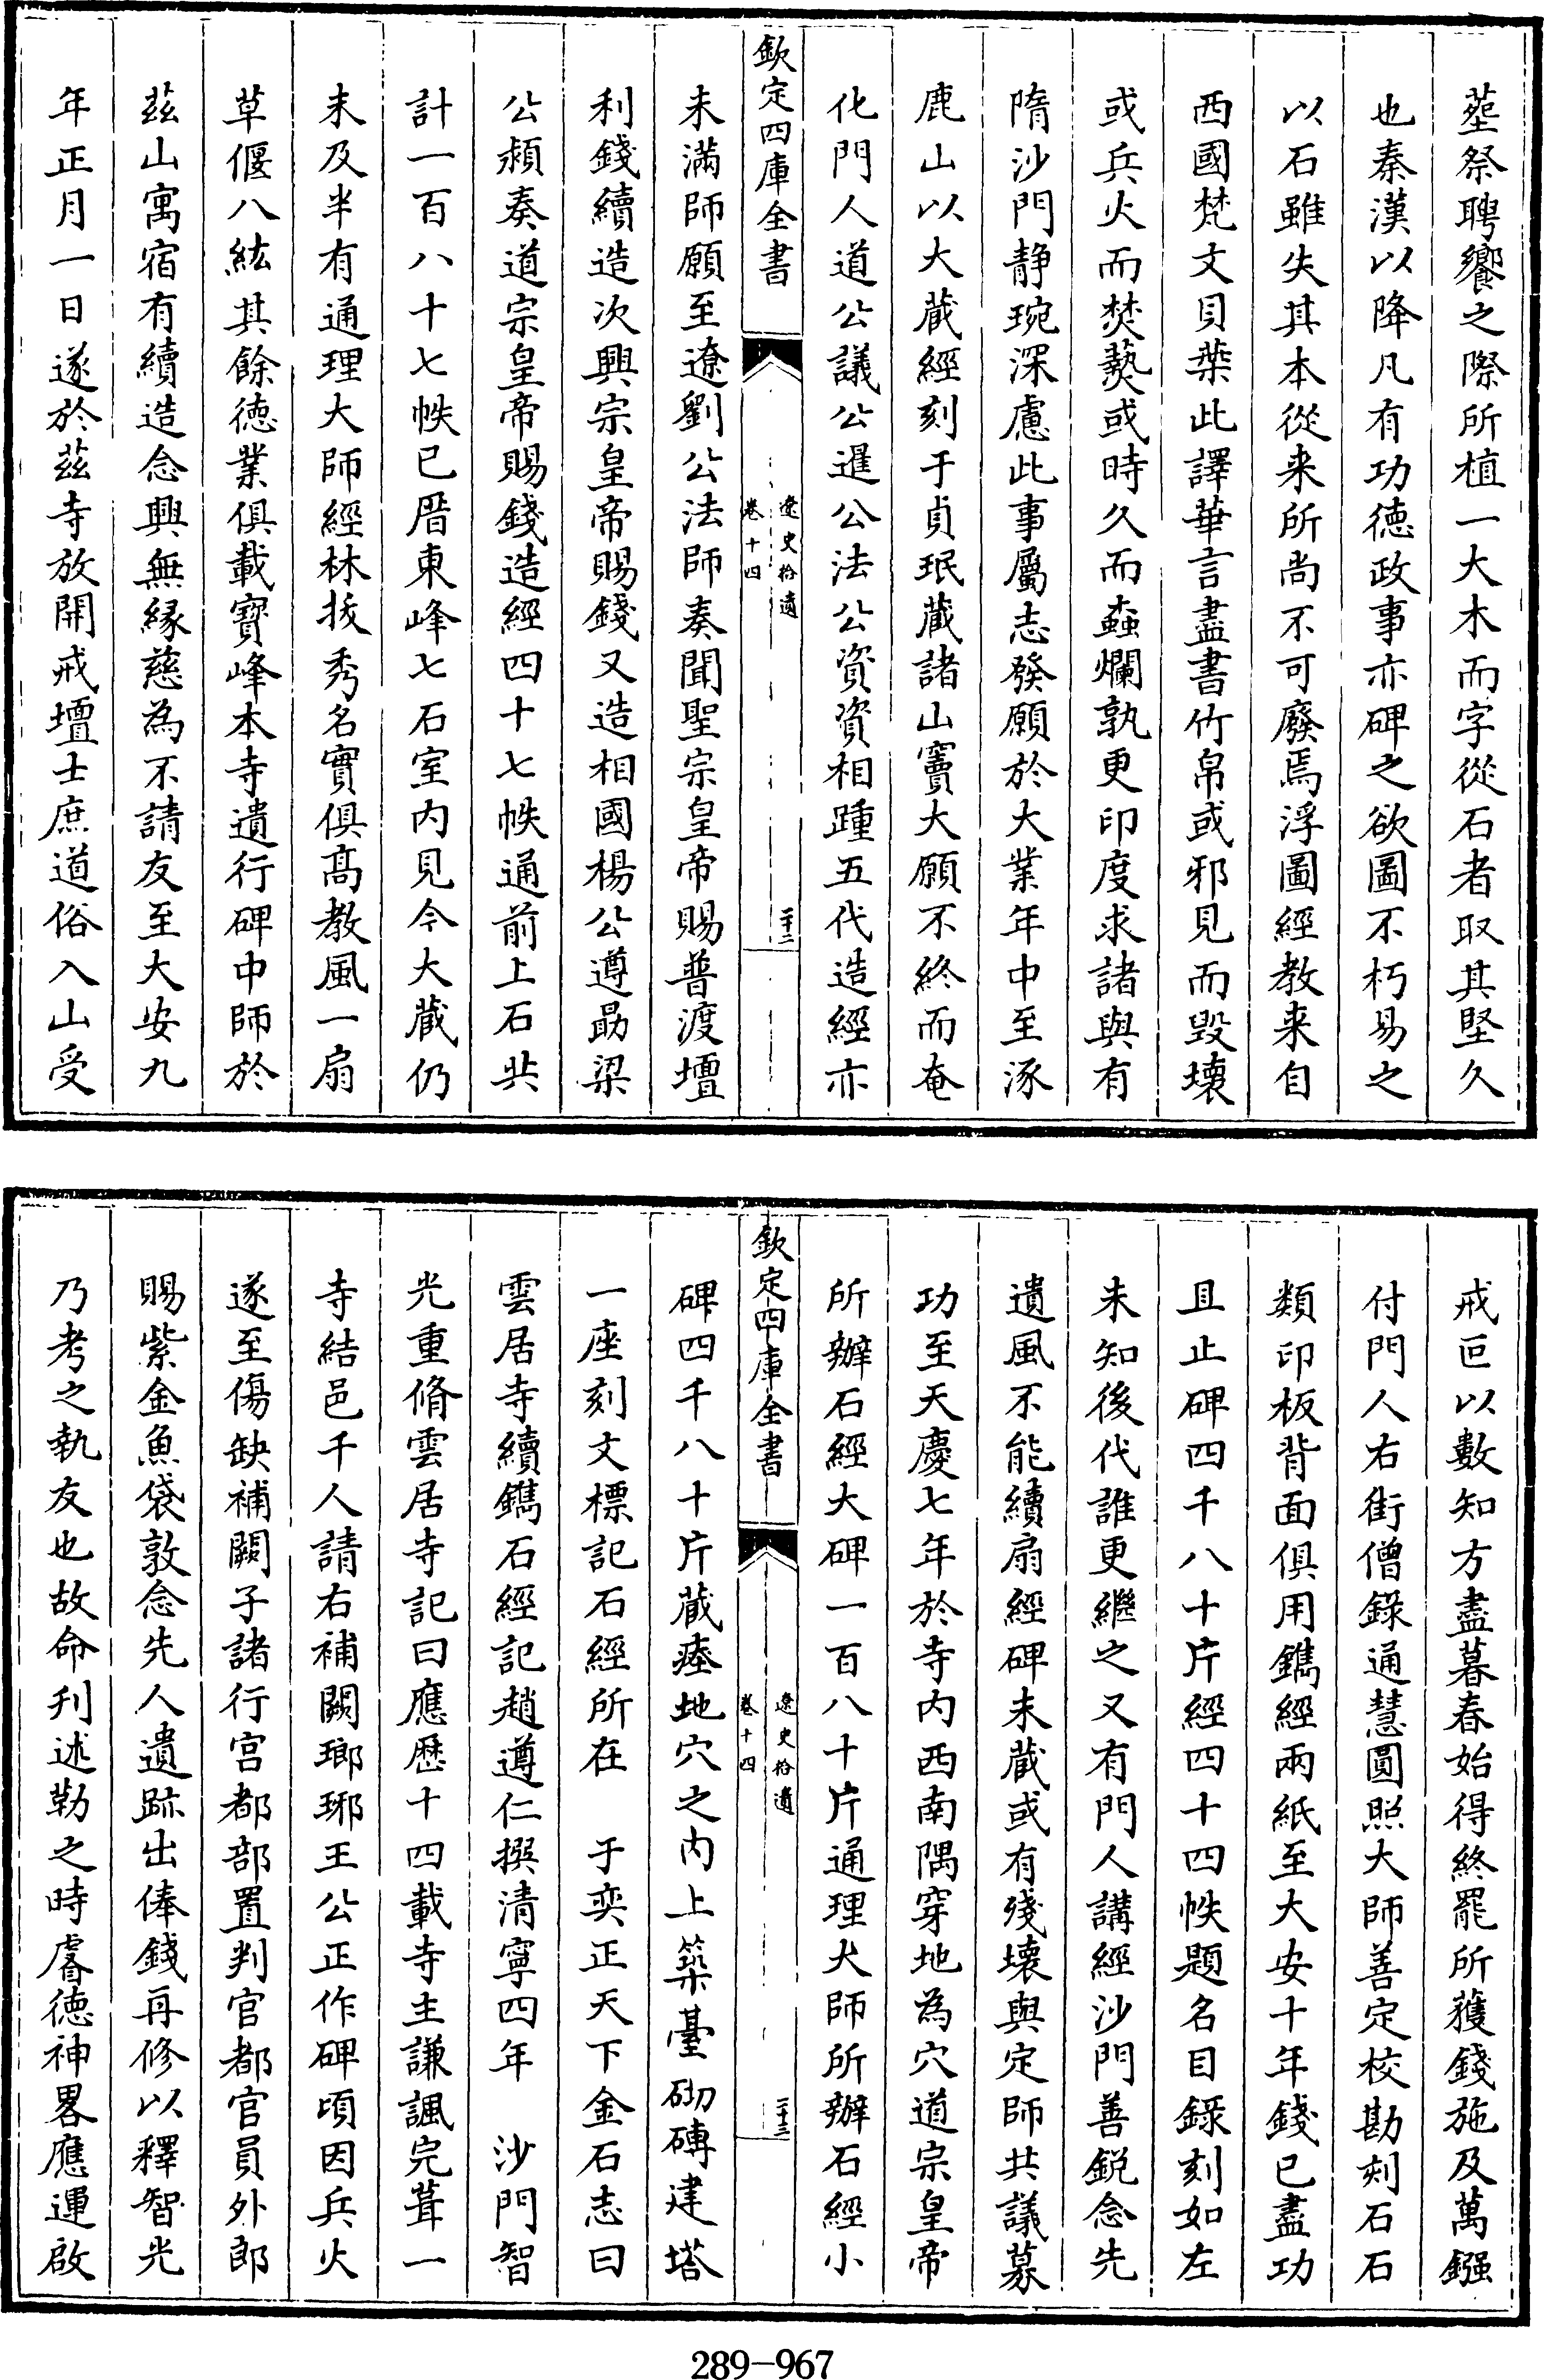 塟祭聘饗之際所植一大木而字從石者取其堅久
也秦漢以降凡有功徳政事亦碑之欲圖不朽易之
以石雖失其本從来所尚不可廢焉浮圖經教来自
西國梵文貝葉此譯華言盡書竹帛或邪見而毀壊
或兵火而焚爇或時久而蟲爛孰更印度求諸與有
隋沙門静琬深慮此事屬志發願於大業年中至涿
鹿山以大藏經刻于貞珉藏諸山竇大願不終而奄
化門人道公議公暹公法公資資相踵五代造經亦
欽定四庫全書
遼史拾遺
卷十四
二十二
未滿師願至遼劉公法師奏聞聖宗皇帝賜普渡壇
利錢續造次興宗皇帝賜錢又造相國楊公遵勗梁
公頻奏道宗皇帝賜錢造經四十七帙通前上石共
計一百八十七帙已厝東峰七石室内見今大藏仍
未及半有通理大師經林拔秀名實俱髙教風一扇
草偃八紘其餘徳業俱載寳峰本寺遺行碑中師於
兹山寓宿有續造念興無縁慈為不請友至大安九
年正月一日遂於兹寺放開戒壇士庶道俗入山受
戒叵以數知方盡暮春始得終罷所獲錢施及萬鏹
付門人右街僧錄通慧圓照大師善定校勘刻石石
類印板背面俱用鐫經兩紙至大安十年錢已盡功
且止碑四千八十片經四十四帙題名目錄刻如左
未知後代誰更繼之又有門人講經沙門善鋭念先
遺風不能續扇經碑未藏或有殘壊與定師共議募
功至天慶七年於寺内西南隅穿地為穴道宗皇帝
所辦石經大碑一百八十片通理大師所辦石經小
欽定四庫全書
遼史拾遺
卷十四
二十三
碑四千八十片藏瘞地穴之内上築臺砌磚建塔
一座刻文標記石經所在　于奕正天下金石志曰
雲居寺續鐫石經記趙遵仁撰清寧四年　沙門智
光重脩雲居寺記曰應厯十四載寺主謙諷完葺一
寺結邑千人請右補闕瑯琊王公正作碑頃因兵火
遂至傷缺補闕子諸行宫都部置判官都官員外郎
賜紫金魚袋敦念先人遺跡出俸錢再修以釋智光
乃考之執友也故命刋述勒之時睿徳神畧應運啟
289-967